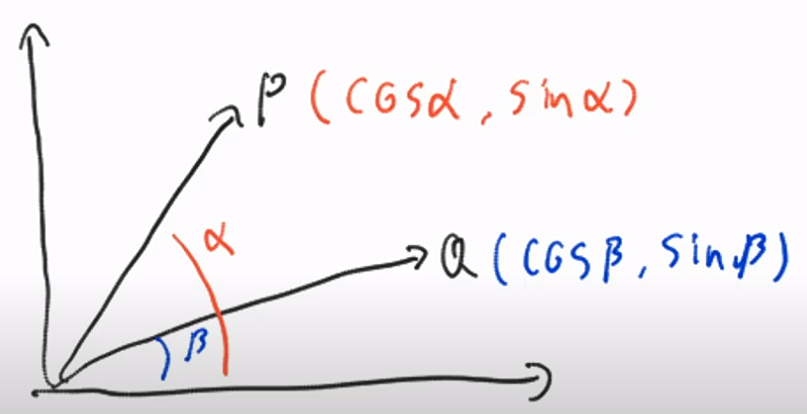 P (cosα, sinα)
α
Q (cosβ, sinβ)
β